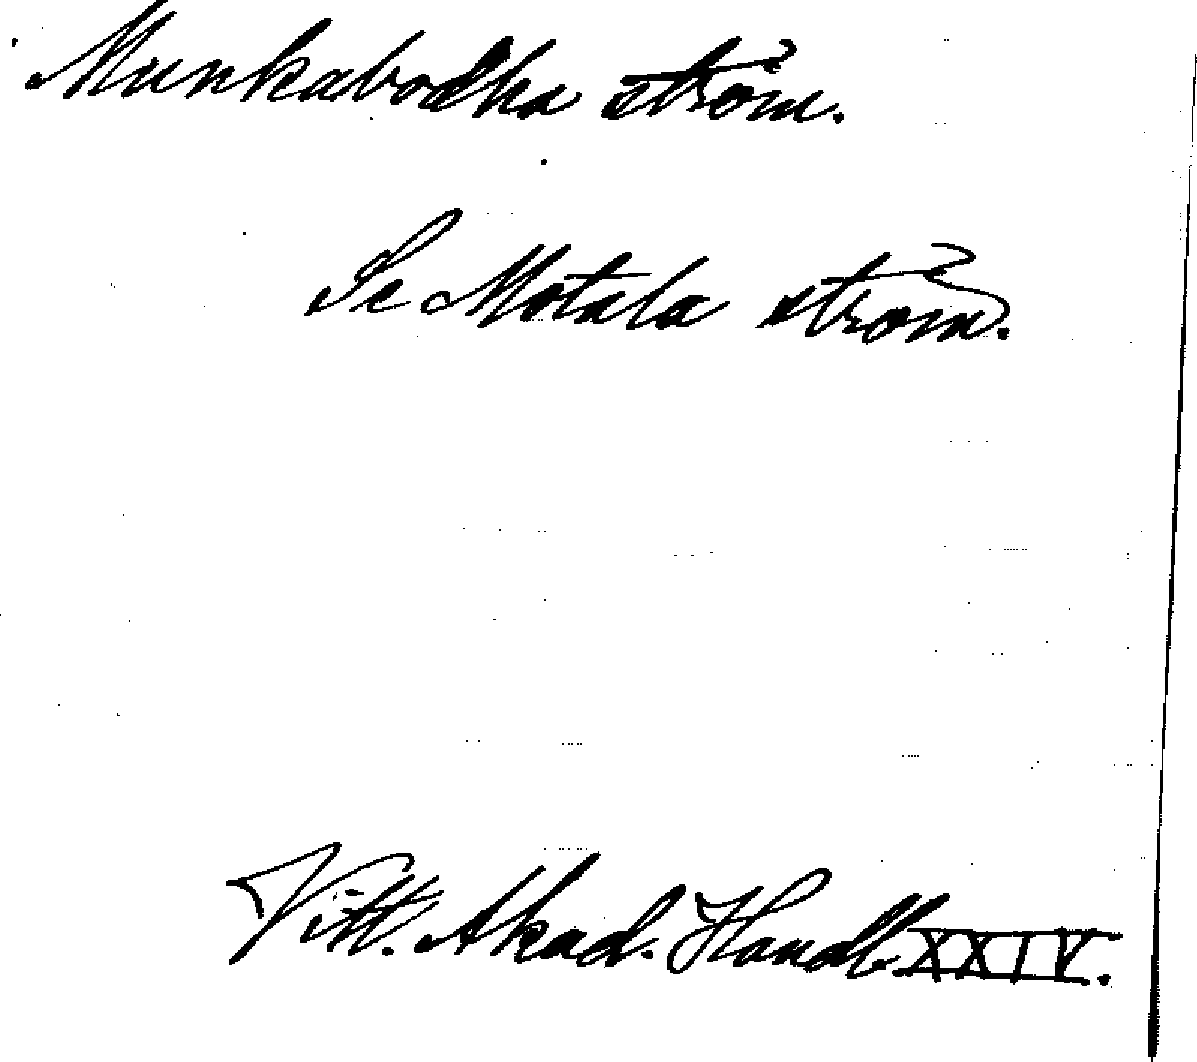 Munkabodha ström.
Se Motala ström.
Vitt. Akad. Handl. XXIV.